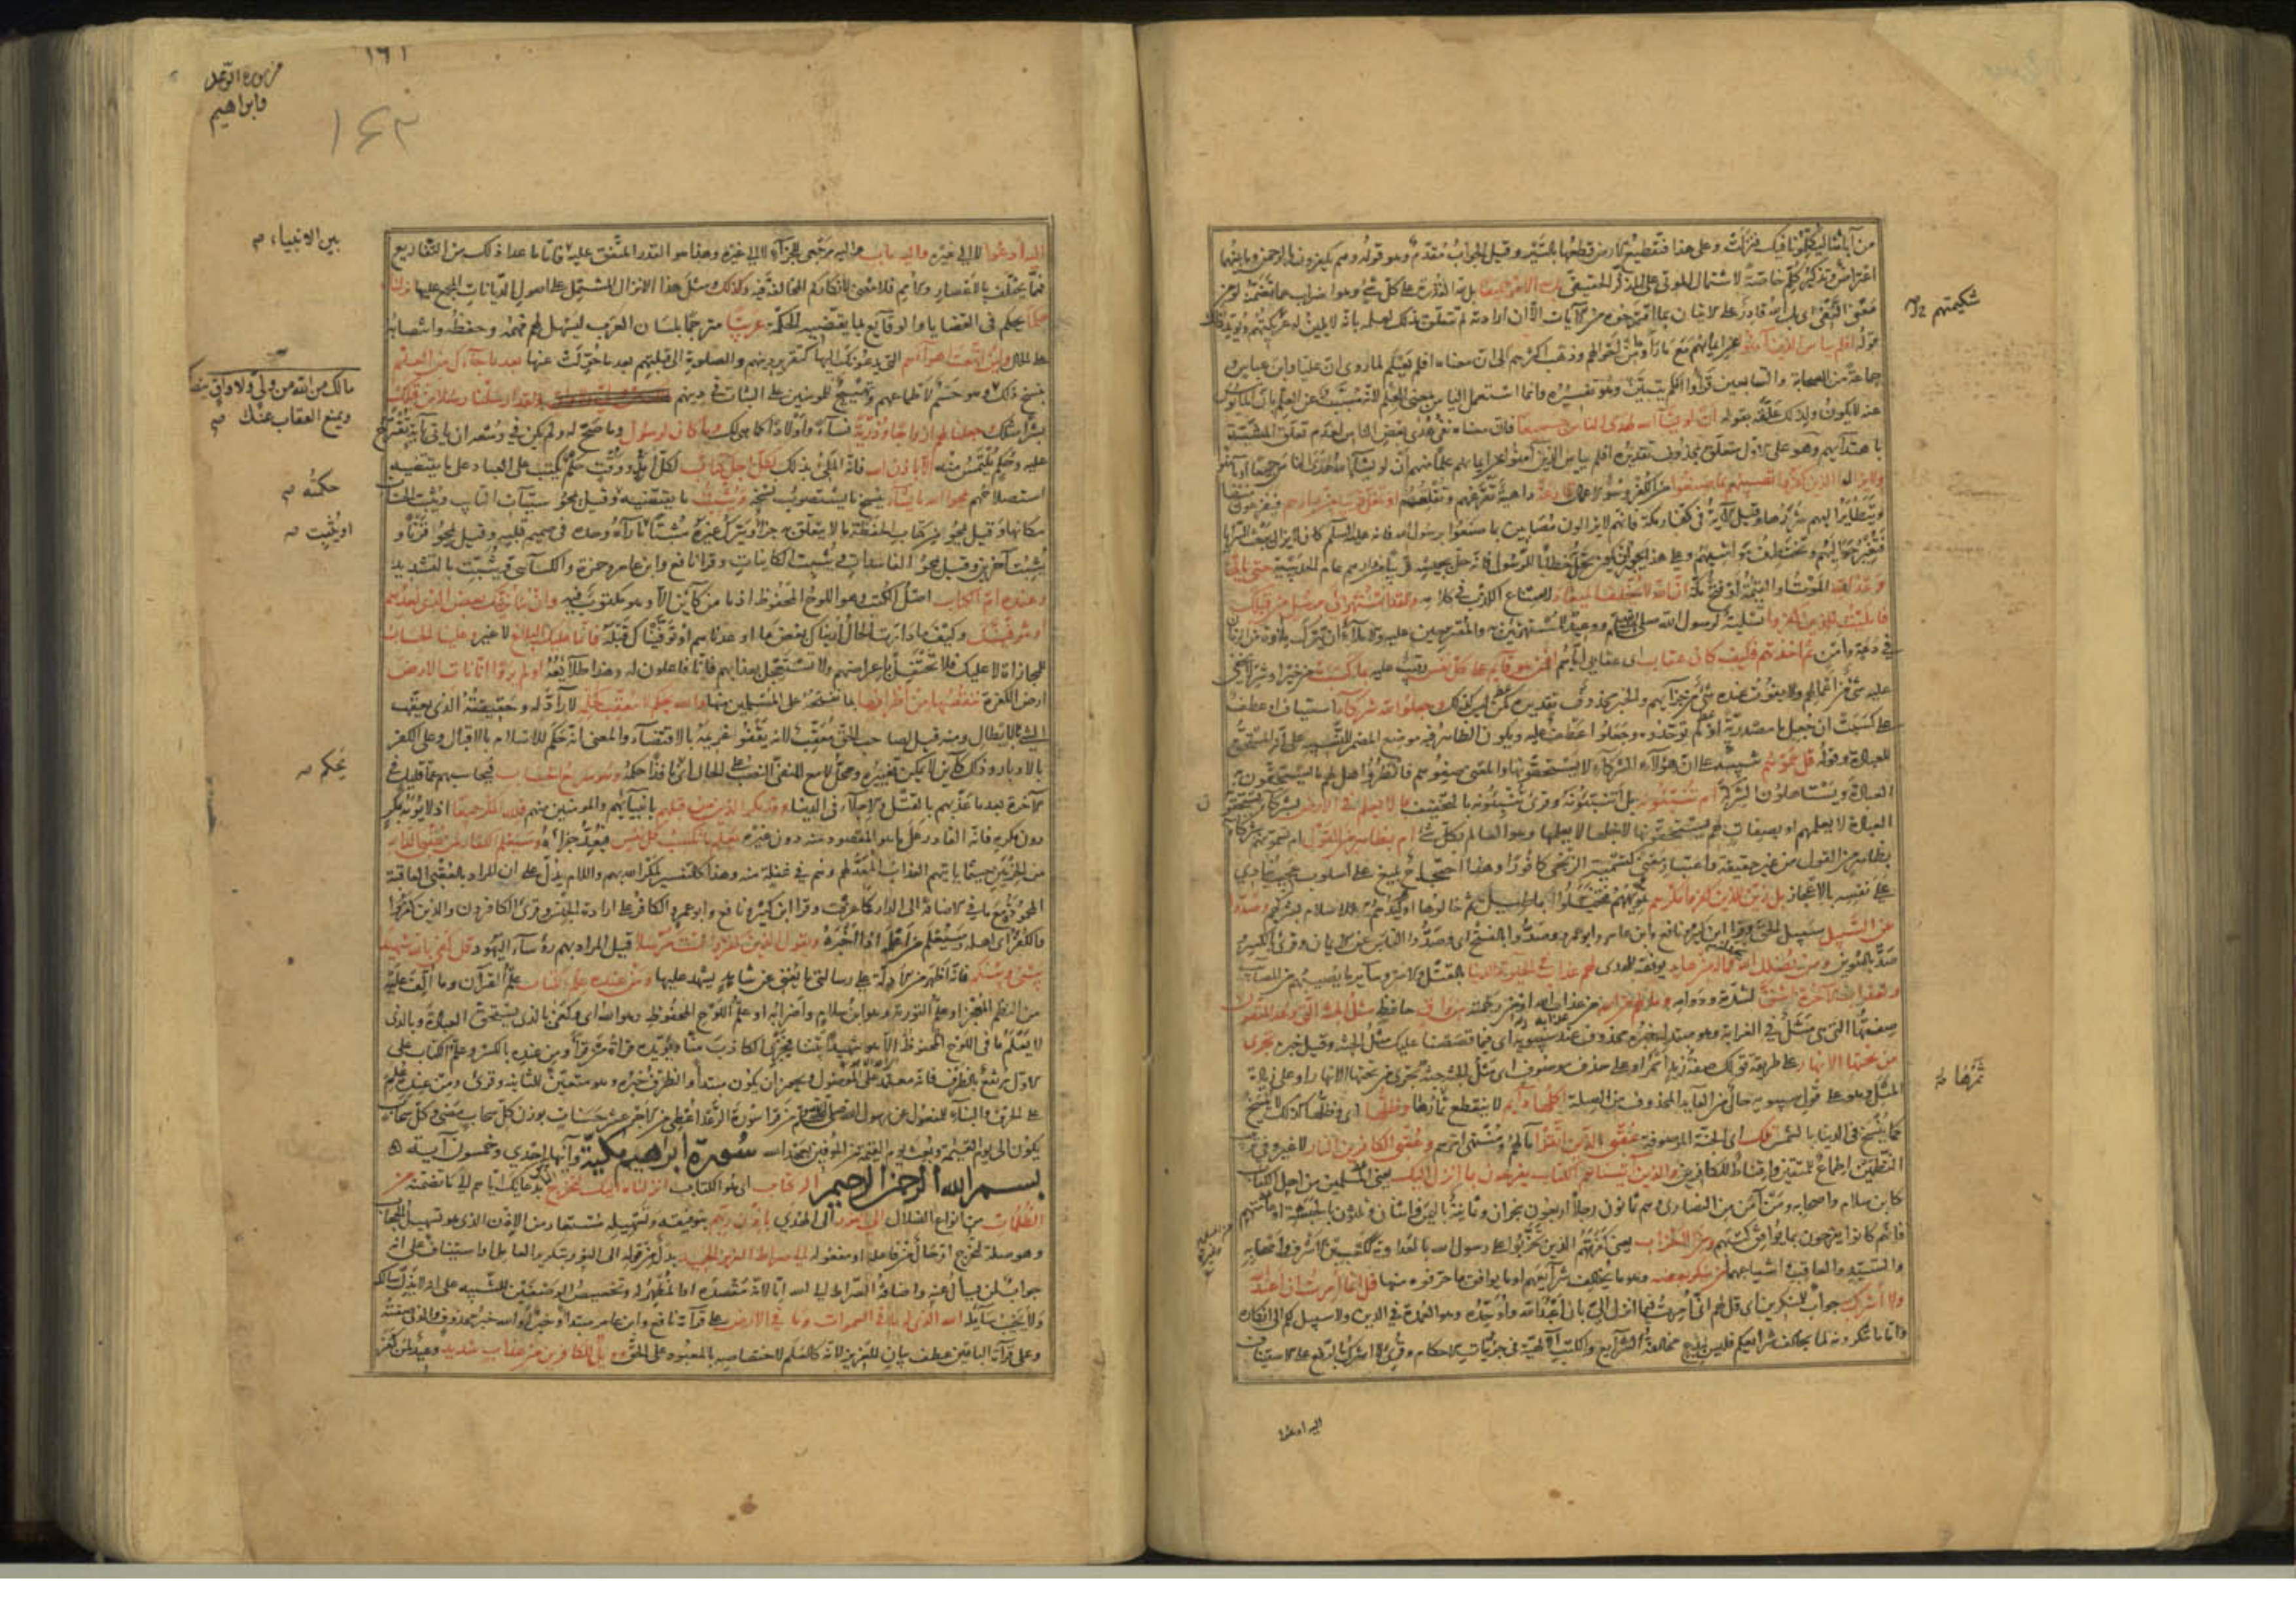 من آبائنا ليكلمونا فيك فنزلت وعلى هذا فتقطيع الارض قطعها بالسير وقيل الجواب مقدم وهو قوله وهم يكفرون بالرحمن وما بينهما
اعتراض وتذكير كلم خاصة لاشتمال الموتى على المذكر الحقيقي بل لله الامر جميعا بل لله القدرة على كل شئ وهو اضراب عما تضمنته لو من
معنى النفي اى بل الله قادر على الاتيان بما اقترحوه من الآيات الا ان ارادته لم تتعلق بذلك لعلمه بانه لا يلين له شكيمتهم ويؤيد ذلك
قوله افلم يياس الذين آمنوا عن ايمانهم مع ما رأوا من احوالهم وذهب اكثرهم الى ان معناه افلم يعلم لما روى ان عليا وابن عباس و
جماعة من الصحابة والتابعين قرأوا افلم يتبين وهو تفسيره وانما استعمل اليأس بمعنى العلم لانه مسبب عن العلم بان المأيوس
عنه لا يكون ولذلك علقه بقوله ان لو يشاء الله لهدى الناس جميعا فان معناه نفى هدى بعض الناس لعدم تعلق المشيئة
باهتدائهم وهو على الاول متعلق بمحذوف تقديره افلم يياس الذين آمنوا عن ايمانهم علما منهم ان لو يشاء الله لهدى الناس جميعا او بآمنوا
ولا يزال الذين كفروا تصيبهم بما صنعوا من الكفر وسوء الاعمال قارعة داهية تقرعهم وتقلقهم او تحل قريبا من دارهم فيفزعون منها
ويتطاير اليهم شررها وقيل الآية في كفار مكة فانهم لا يزالون مصابين بما صنعوا برسول الله فانه عليه السلام كان لا يزال يبعث السرايا
فتغير حواليهم وتختطف مواشيهم وعلى هذا يجوز ان يكون تحل خطابا للرسول فانه حل بجيشه قريبا من دارهم عام الحديبية حتى ياتى
وعد الله الموت او القيمة او فتح مكة ان الله لا يخلف الميعاد لامتناع الكذب في كلامه ولقد استهزئ برسل من قبلك
فامليت للذين كفروا تسلية لرسول الله صلى الله عليه وسلم ووعيد للمستهزئين به والمقترحين عليه والاملاء ان يترك ملاوة من الزمان
في دعة وامن ثم اخذتهم فكيف كان عقاب اى عقابى اياهم افمن هو قائم على كل نفس رقيب عليه بما كسبت من خير او شر لا يخفى
عليه شئ من اعمالهم ولا يفوت عنده شئ من جزائهم والخبر محذوف تقديره كمن ليس كذلك وجعلوا لله شركاء استيناف او عطف
على كسبت ان جعل ما مصدرية او لم يوحدوه وجعلوا عطف عليه ويكون الظاهر فيه موضع المضمر للتنبيه على انه المستحق
للعبادة وقوله قل سموهم تنبيه على ان هؤلاء الشركاء لا يستحقونها والمعنى صفوهم فانظروا هل لهم ما يستحقون به
العبادة ويستاهلون الشركة ام تنبئونه بل اتنبئونه وقرئ تنبئونه بالتخفيف بما لا يعلم في الارض بشركاء يستحقون
العبادة لا يعلمهم او بصفات لهم يستحقونها لاجلها لا يعلمها وهو العالم بكل شئ ام بظاهر من القول ام تسمونهم شركاء
بظاهر من القول من غير حقيقة واعتبار معنى كتسمية الزنجى كافورا وهذا احتجاج بليغ على اسلوب عجيب ينادى
على نفسه بالاعجاز بل زين للذين كفروا مكرهم تمويههم فتخيلوا اباطيل ثم خالوها او كيدهم للاسلام بشركهم وصدوا
عن السبيل سبيل الحق وقرا ابن كثير ونافع وابن عامر وابو عمرو وصدوا بالفتح اى وصدوا الناس عن الايمان وقرئ بالكسر و
صد بالتنوين ومن يضلل الله فما له من هاد يوفقه للهدى لهم عذاب في الحيوة الدنيا بالقتل والاسر وساير ما يصيبهم من المصايب
ولعذاب الآخرة اشق لشدته ودوامه وما لهم من الله من عذابه او من رحمته من واق حافظ مثل الجنة التى وعد المتقون
صفتها التى هى مثل في الغرابة وهو مبتدا خبره محذوف عند سيبويه اى فيما قصصنا عليك مثل الجنة وقيل خبره تجرى
من تحتها الانهار على طريقة قولك صفة زيد اسمر او على حذف موصوف اى مثل الجنة جنة تجرى من تحتها الانهار او على زيادة
المثل وهو على قول سيبويه حال من العايد المحذوف من الصلة اكلها دائم لا ينقطع ثمرها وظلها اى وظلها كذلك لا ينسخ
كما ينسخ في الدنيا بالشمس تلك اى الجنة الموصوفة عقبى الذين اتقوا مآلهم ومنتهى امرهم وعقبى الكافرين النار لا غير وفي ترتيب
النظمين اطماع للمتقين واقناط للكافرين والذين آتيناهم الكتاب يفرحون بما انزل اليك يعنى المسلمين من اهل الكتاب
كابن سلام واصحابه ومن آمن من النصارى وهم ثمانون رجلا اربعون بنجران وثمانية باليمن واثنان وثلثون بالحبشة او عامتهم
فانهم كانوا يفرحون بما يوافق كتبهم ومن الاحزاب يعنى كفرتهم الذين تحزبوا على رسول الله بالعداوة ككعب بن الاشرف واصحابه
والسيد والعاقب واشياعهما من ينكر بعضه وهو ما يخالف شرايعهم او ما يوافق ما حرفوه منها قل انما امرت ان اعبد الله
ولا اشرك به جواب للمنكرين اى قل لهم انى امرت فيما انزل الى بان اعبد الله واوحده وهو العمدة في الدين ولا سبيل لكم الى انكاره
واما ما تنكرونه لما يخالف شرايعكم فليس ببدع مخالفة الشرايع والكتب الالهية في جزئيات الاحكام وقرئ ولا اشرك بالرفع على الاستيناف
شكيمتهم
ثمرها
اليه ادعوا
١٦١
١٦٢
من سورة الرعد
وابراهيم
اليه ادعوا لا الى غيره واليه مآب واليه مرجعى للجزاء لا الى غيره وهذا هو القدر المتفق عليه فاما ما عدا ذلك من التفاريع
فمما يختلف بالاعصار والامم فلا معنى لانكاركم المخالفة فيه وكذلك ومثل هذا الانزال المشتمل على اصول الديانات المجمع عليها انزلناه
حكما يحكم في القضايا والوقايع بما يقتضيه الحكمة عربيا مترجما بلسان العرب ليسهل لهم فهمه وحفظه وانتصابه
على الحال ولئن اتبعت اهواءهم التى يدعونك اليها كتقرير دينهم والصلوة الى قبلتهم بعد ما حولت عنها بعد ما جاءك من العلم
بنسخ ذلك وهو حسم لاطماعهم وتهييج للمؤمنين على الثبات في دينهم ولقد ارسلنا رسلا من قبلك
بشرا مثلك وجعلنا لهم ازواجا وذرية نساء واولادا كما هى لك وما كان لرسول وما صح له ولم يكن في وسعه ان ياتى بآية تقترح
عليه وحكم يلتمس منه الا باذن الله فانه الملى بذلك لكل اجل كتاب لكل وقت وامد حكم يكتب على العباد على ما يقتضيه
استصلاحهم يمحوا الله ما يشاء ينسخ ما يستصوب نسخه ويثبت ما يقتضيه وقيل يمحو سيئات التائب ويثبت الحسنات
مكانها وقيل يمحو من كتاب الحفظة ما لا يتعلق به جزاء ويترك غيره مثبتا او يثبت ما رآه وحده في صميم قلبه وقيل يمحو قرنا و
يثبت آخرين وقيل يمحو الفاسدات ويثبت الكاينات وقرا نافع وابن عامر وحمزة والكسائى ويثبت بالتشديد
وعنده ام الكتاب اصل الكتب وهو اللوح المحفوظ اذ ما من كائن الا وهو مكتوب فيه وان ما نرينك بعض الذى نعدهم
او نتوفينك وكيف ما دارت الحال اريناك بعض ما اوعدناهم او توفيناك قبله فانما عليك البلاغ لا غير وعلينا الحساب
للمجازاة لا عليك فلا تحتفل باعراضهم ولا تستعجل بعذابهم فانا فاعلون له وهذا طلايعه اولم يروا انا ناتى الارض
ارض الكفرة ننقصها من اطرافها بما نفتحه على المسلمين منها والله يحكم لا معقب لحكمه لا راد له وحقيقته الذى يعقب
الشئ بالابطال ومنه قيل لصاحب الحق معقب لانه يقفو غريمه بالاقتضاء والمعنى انه حكم للاسلام بالاقبال وعلى الكفر
بالادبار وذلك كاين لا يمكن تغييره ومحل لا مع المنفى النصب على الحال اى نافذا حكمه وهو سريع الحساب فيحاسبهم عما قليل في
الآخرة بعد ما عذبهم بالقتل والاجلاء في الدنيا وقد مكر الذين من قبلهم بانبيائهم والمؤمنين منهم فلله المكر جميعا اذ لا يؤبه بمكر
دون مكره فانه القادر على ما هو المقصود منه دون غيره يعلم ما تكسب كل نفس فيعد جزاءه وسيعلم الكفار لمن عقبى الدار
من الحزبين حيثما ياتيهم العذاب المعد لهم وهم في غفلة منه وهذا كالتفسير لمكر الله بهم واللام يدل على ان المراد بالعقبى العاقبة
المحمودة مع ما في الاضافة الى الدار كما عرفت وقرا ابن كثير ونافع وابو عمرو الكافر على ارادة الجنس وقرئ الكافرون والذين كفروا
والكفر اى اهله وسيعلم من اعلمه اذا اخبره ويقول الذين كفروا لست مرسلا قيل المراد بهم رؤساء اليهود قل كفى بالله شهيدا
بينى وبينكم فانه اظهر من الادلة على رسالتى ما يغنى عن شاهد يشهد عليها ومن عنده علم الكتاب علم القرآن وما الف عليه
من النظم المعجز او علم التورية وهو ابن سلام واضرابه او علم اللوح المحفوظ وهو الله اى وكفى بالذى يستحق العبادة وبالذى
لا يعلم ما في اللوح المحفوظ الا هو شهيدا بيننا فيخزى الكاذب منا ويؤيده قراءة من قرأ ومن عنده بالكسر وعلم الكتاب على
الاول مرتفع بالظرف فانه معتمد على الموصول ويجوز ان يكون مبتدأ والظرف خبره وهو متعين للثانية وقرئ ومن عنده علم
على الحرف والبناء للمفعول عن رسول الله صلى الله عليه وسلم من قرا سورة الرعد اعطى من الاجر عشر حسنات بوزن كل سحاب مضى وكل سحاب
يكون الى يوم القيمة وبعث يوم القيمة من الموفين بعهد الله سورة ابراهيم مكية وآيها احدى وخمسون آية
بسم الله الرحمن الرحيم الر كتاب اى هو الكتاب انزلناه اليك لتخرج الناس بدعائك اياهم الى ما تضمنه من
الظلمات من انواع الضلال الى النور الى الهدى باذن ربهم بتوفيقه وتسهيله مستعار من الاذن الذى هو تسهيل الحجاب
وهو صلة لتخرج او حال من فاعله او مفعوله الى صراط العزيز الحميد بدل من قوله الى النور بتكرير العامل او استيناف على انه
جواب لمن يسأل عنه واضافة الصراط الى الله اما لانه مقصده او المظهر له وتخصيص الوصفين للتنبيه على انه لا يذل سالكه
ولا يخيب سابله الله الذى له ما في السموات وما في الارض على قراءة نافع وابن عامر مبتدا وخبر او الله خبر محذوف والذى صفته
وعلى قراءة الباقين عطف بيان للعزيز لانه كالعلم لاختصاصه بالمعبود على الحق وويل للكافرين من عذاب شديد وعيد لمن كفر
بين الانبياء
مالك من الله من ولى ولا واق ينصرك
ويمنع العقاب عنك
حكمته
او يثبت
يحكم